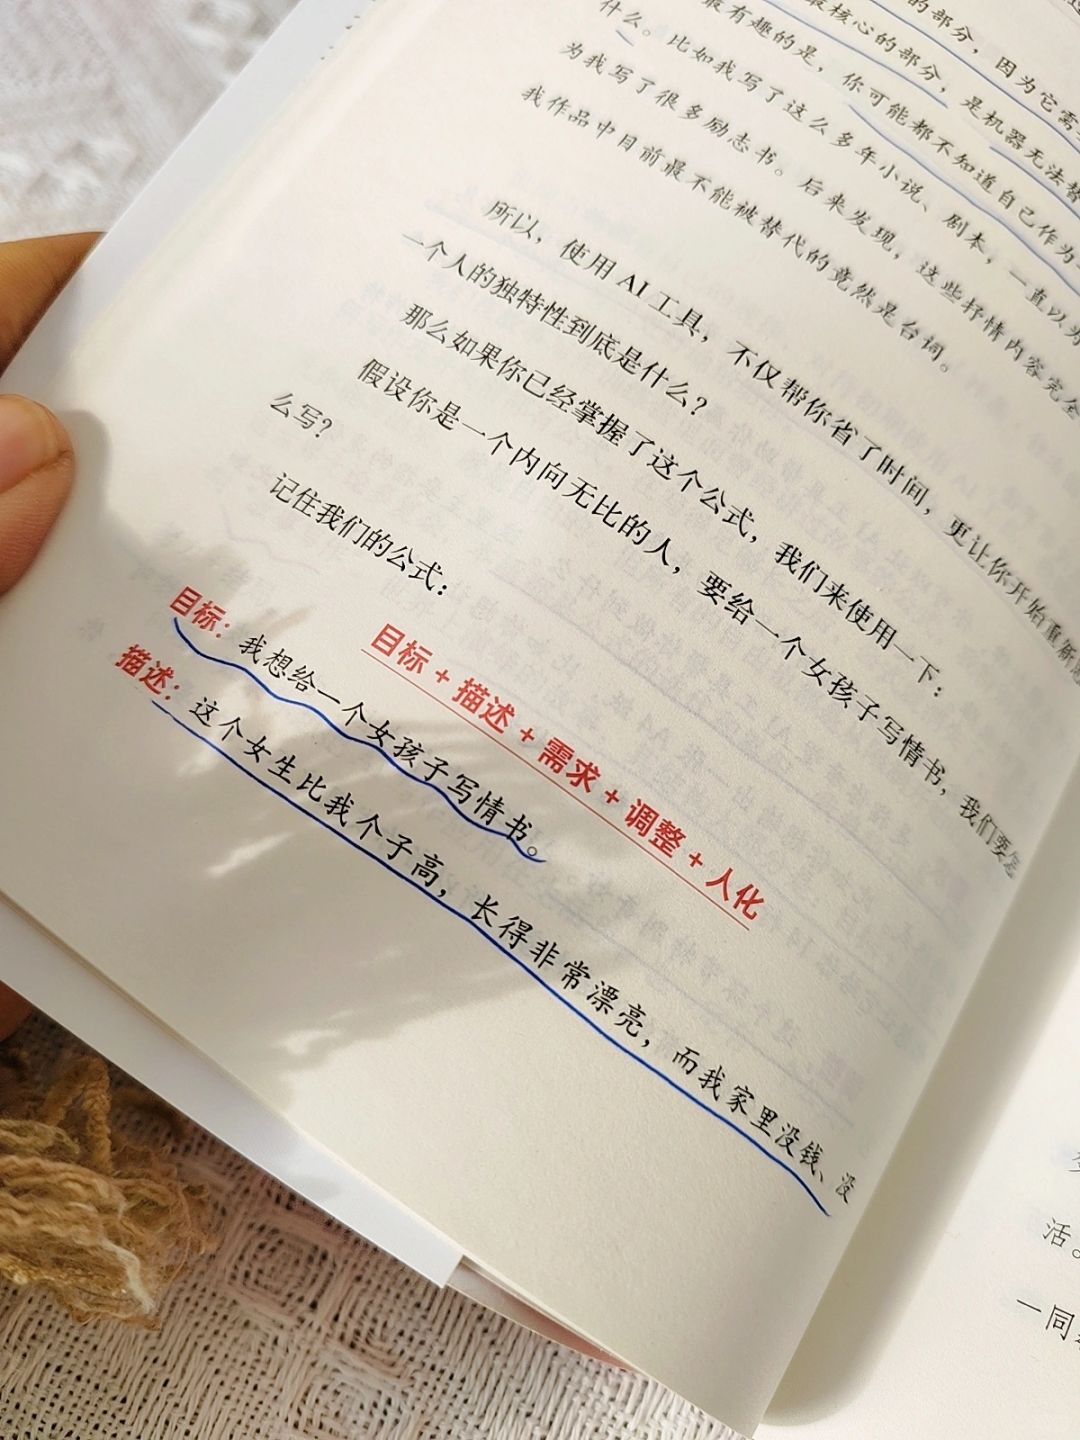 的部分，因为它需
最核心的部分，是机器无法替
最有趣的是，你可能都不知道自己作为一
什么。比如我写了这么多年小说、剧本，一直以为
为我写了很多励志书。后来发现，这些抒情内容完全
我作品中目前最不能被替代的竟然是台词。
所以，使用 AI 工具，不仅帮你省了时间，更让你开始重新思
一个人的独特性到底是什么？
那么如果你已经掌握了这个公式，我们来使用一下：
假设你是一个内向无比的人，要给一个女孩子写情书，我们要怎
么写？
记住我们的公式：
目标 + 描述 + 需求 + 调整 + 人化
目标：我想给一个女孩子写情书。
描述：这个女生比我个子高，长得非常漂亮，而我家里没钱、没
活。
一同